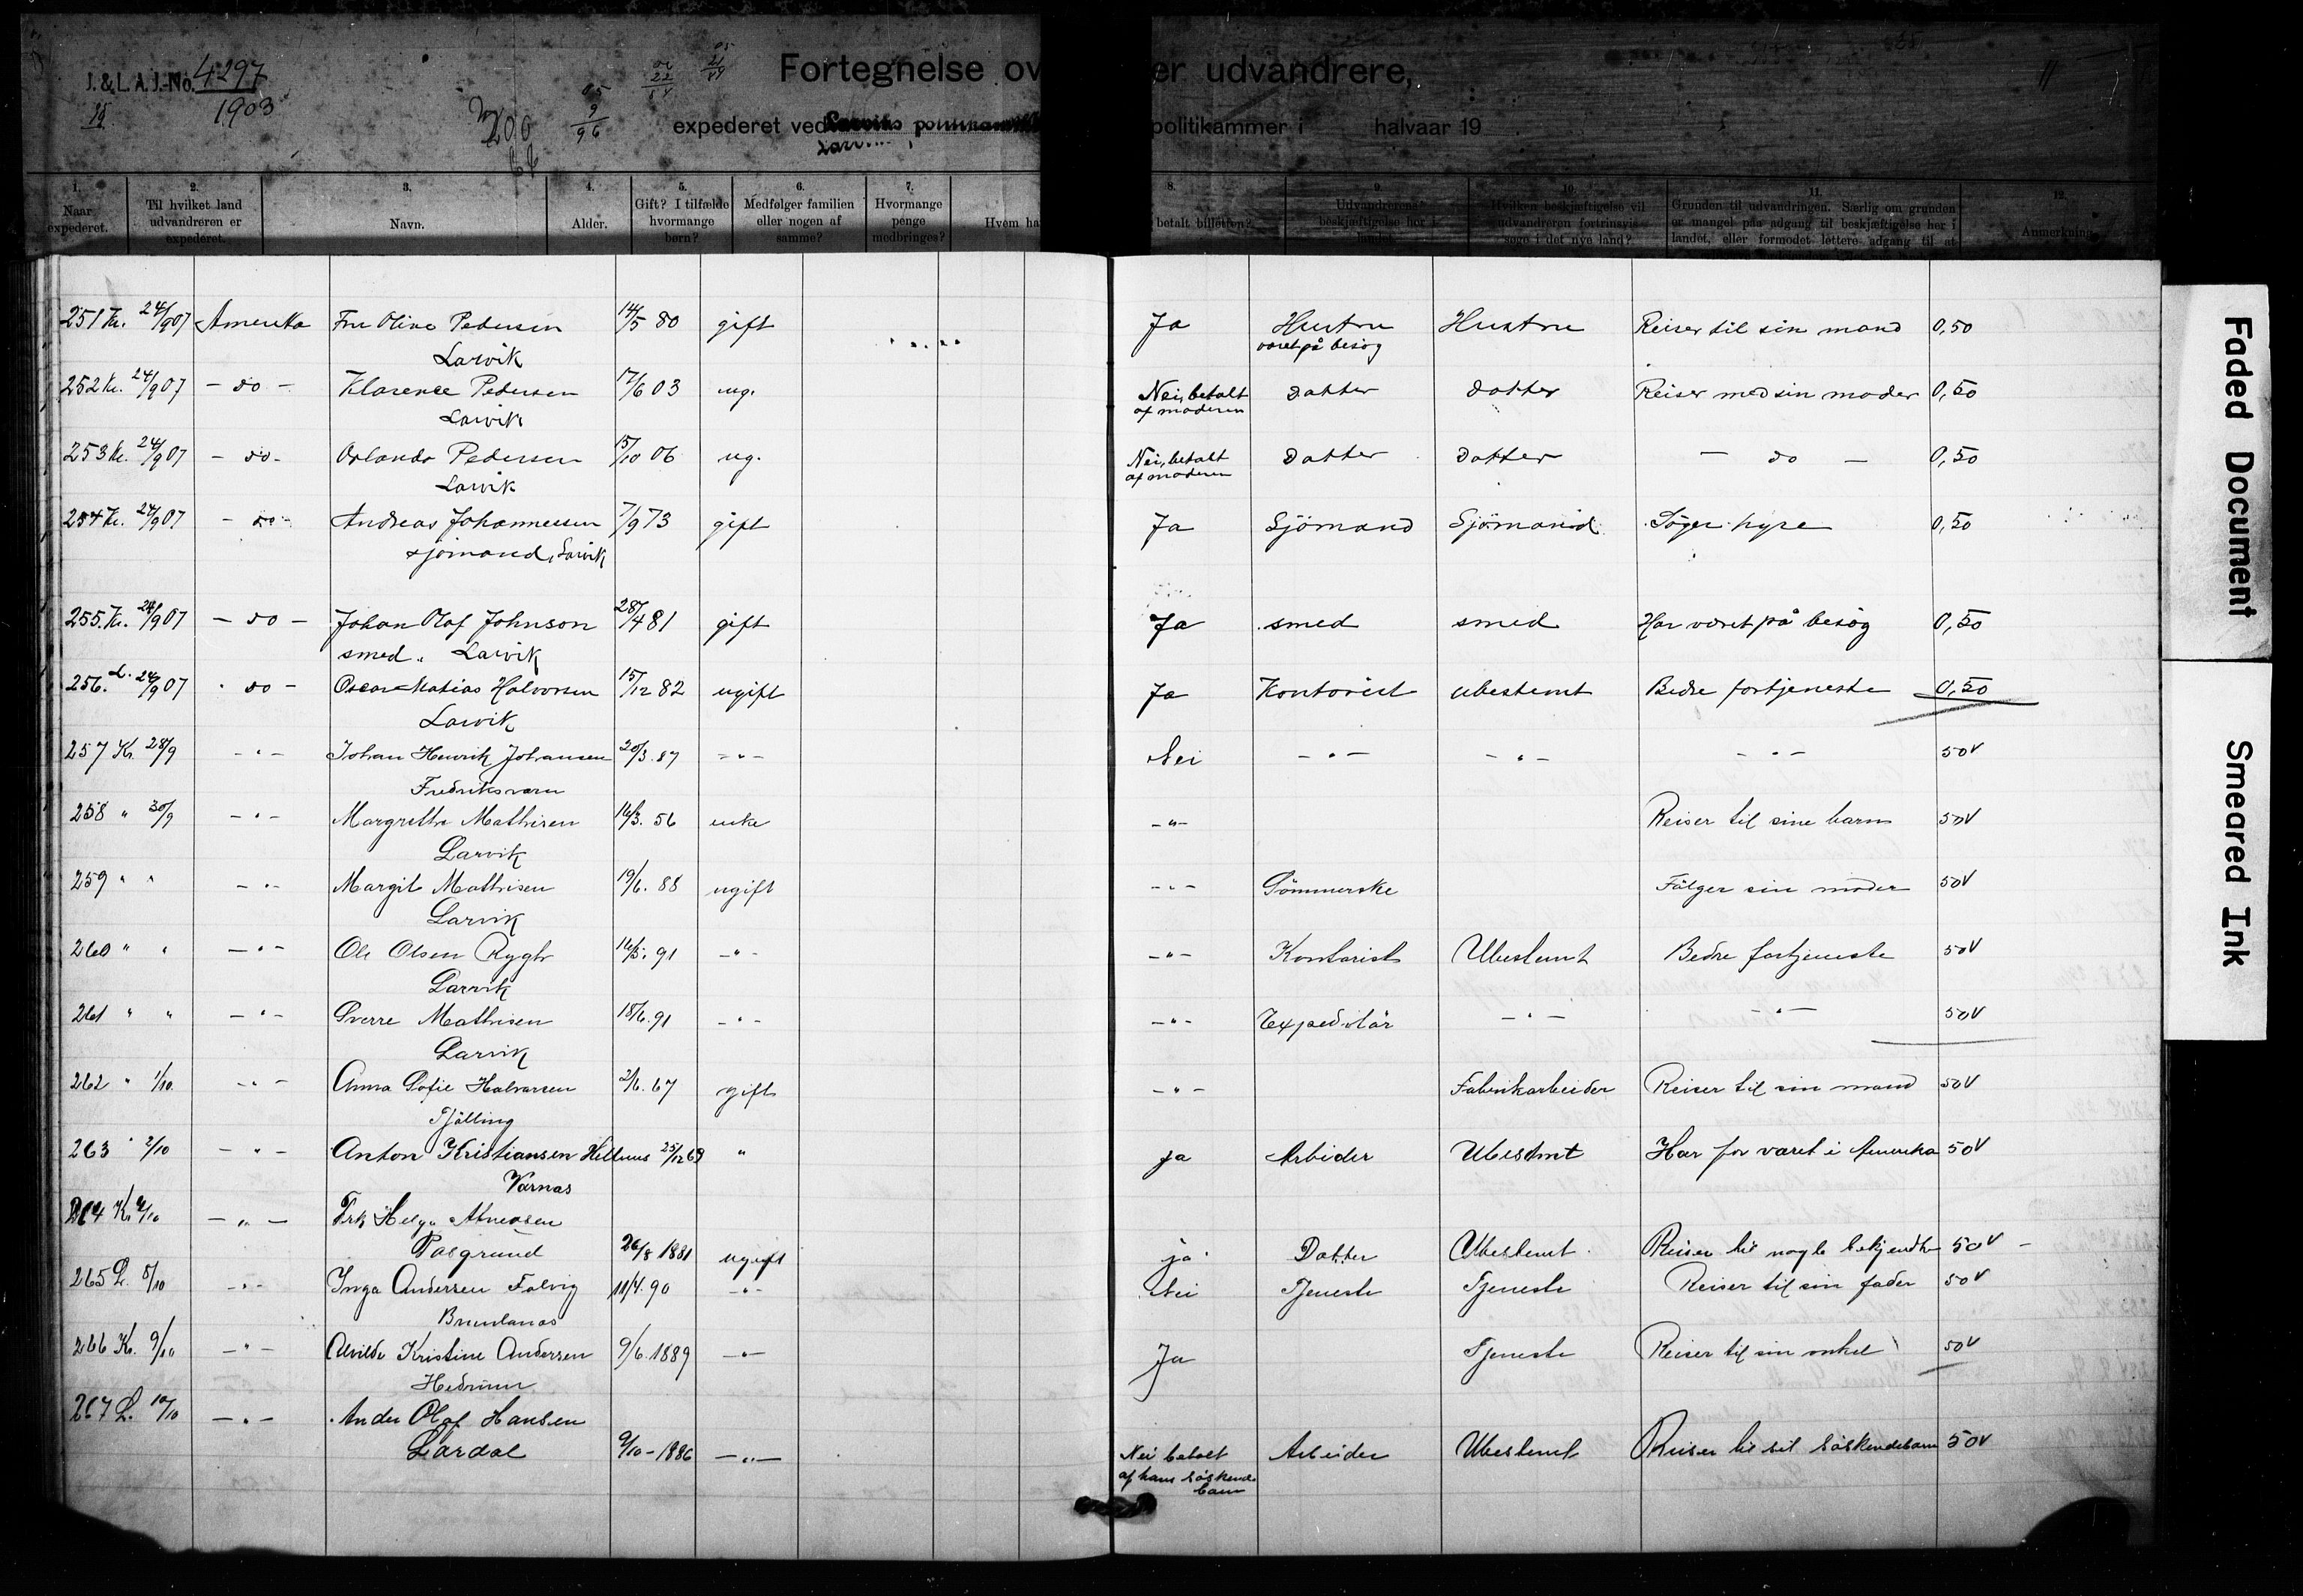 J. & L. A. J.-No. 4297
1903
15
200
9
96
Fortegnelse over udvandrere,
expederet ved Larviks politikammer i halvaar 19
Larvik
11
1. Naar expederet.
2. Til hvilket land udvandreren er expederet.
3. Navn.
4. Alder.
5. Gift? I tilfælde hvormange børn?
6. Medfølger familien eller nogen af samme?
7. Hvormange penge medbringes?
8. Hvem ha betalt billetten?
9. Udvandrerens beskjæftigelse her i landet.
10. Hvilken beskjæftigelse vil udvandreren fortrinsvis søge i det nye land?
11. Grunden til udvandringen. Særlig om grunden er mangel paa adgang til beskjæftigelse her i landet, eller formodet lettere adgang til at
12. Anmerkning.
251 Kr. 24/9 07 Amerika Fru Olive Pedersen 14/5 80 gift Ja Hustru Hustru Reiser til sin mand 0,50
Larvik været på besøg
252 Kr. 24/9 07 - do - Klarence Pedersen 17/6 03 ug. Nei, betalt Datter Datter Reiser med sin moder 0,50
Larvik af moderen
253 Kr. 24/9 07 - do - Orlando Pedersen 15/10 06 ug. Nei, betalt Datter Datter - do - 0,50
Larvik af moderen
254 Kr. 24/9 07 - do - Andreas Johannessen 7/9 73 gift Ja Sjömand Sjömand Söger hyre 0,50
sjömand, Larvik
255 Kr. 24/9 07 - do - Johan Olaf Johnson 28/4 81 gift Ja smed smed Har været på besög 0,50
smed. Larvik
256 L. 24/9 07 - do - Oscar Matias Halvorsen 15/12 82 ugift Ja Kontorist ubestemt Bedre fortjeneste 0,50
Larvik
257 Kr. 28/9 - " - Johan Henrik Johansen 20/3 87 - " - Nei - " - - " - - " - 50 v
Fredriksværn
258 " 30/9 - " - Margrethe Mathisen 16/3. 56 enke - " - Reiser til sine barn 50 v
Larvik
259 " " - " - Margit Mathisen 19/6. 88 ugift - " - Sömmerske Fölger sin moder 50 v
Larvik
260 " " - " - Ole Olsen Rygh 14/5. 91 - " - - " - Kontorist Ubestemt Bedre fortjeneste 50 v
Larvik
261 " " - " - Sverre Mathisen 18/6. 91 - " - - " - Expeditör - " - - " - 50 v
Larvik
262 " 1/10. - " - Anna Sofie Halvorsen 2/6. 67 gift - " - Fabrikarbeider Reiser til sin mand 50 v
Tjölling
263 " 2/10 - " - Anton Kristiansen Hellenes 25/12 69 " ja Arbeider Ubestemt Har for været i Amerika 50 v
Varnas
264 Kr 4/10 - " - Frk Helga
Porsgrund 26/8 1881 ugift ja Datter Ubestemt Reiser til nogle bekjendte 50 v
265 L. 8/10 - " - Inga Andersen Falvig 11/4. 90 - " - Nei Tjeneste Tjeneste Reiser til sin fader 50 v
Brunlanæs
266 Kr. 9/10 - " - Alvilde Kristine Andersen 9/6. 1889 - " - Ja Tjeneste Reiser til sin onkel 50 v
Hedrum
267 L. 10/10 - " - Anders Olaf Hansen
Lardal 9/10 - 1886 - " - Nei betalt Arbeider Ubestemt Reiser til sit söskendebarn 50 v
af hans söskende
barn
Faded Document
Smeared Ink